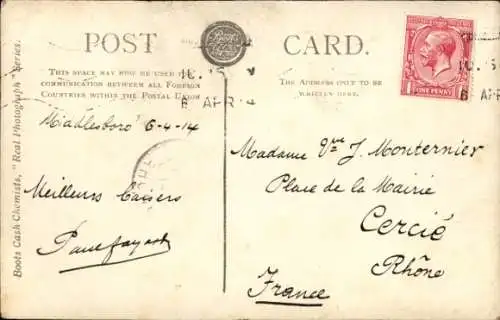 POST CARD.
Boots
THIS SPACE MAY NOW BE USED FOR
COMMUNICATION BETWEEN ALL FOREIGN
COUNTRIES WITHIN THE POSTAL UNION
THE ADDRESS ONLY TO BE
WRITTEN HERE.
ONE PENNY
6 APR
6 APR
Boots Cash Chemists, "Real Photograph" Series.
Middlesboro' 6-4-14
Meilleurs Baisers
Madame Vve J. Monternier
Place de la Mairie
Cercié
Rhône
France